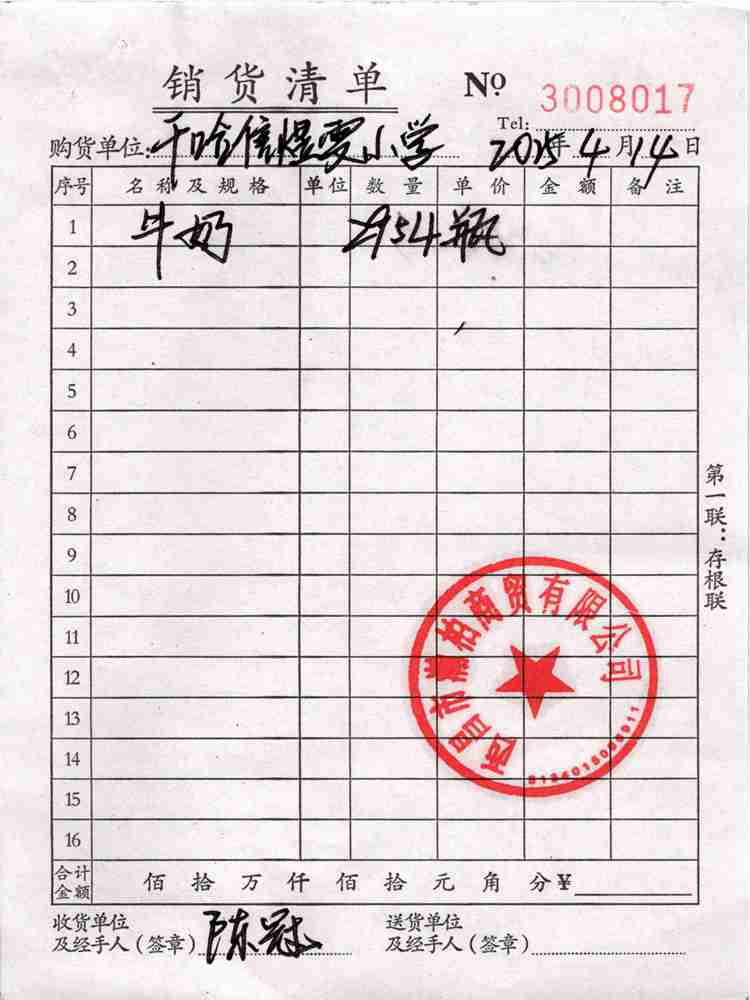 销货清单 № 3008017
Tel:
购货单位: 小学 2015年4月14日
序号 名称及规格 单位 数量 单价 金额 备注
1 牛奶 2954瓶
2
3
4
5
6
7
8
9
10
11
12
13
14
15
16
合计金额 佰拾万仟佰拾元角分¥
收货单位 送货单位
及经手人(签章) 陈冠 及经手人(签章)
第一联:存根联
西昌市 柏商贸有限公司